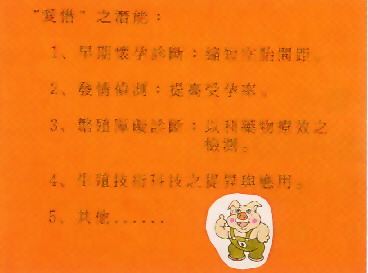 "愛惜"之潛能：
1、早期懷孕診斷：縮短空胎間距。
2、發情偵測：提高受孕率。
3、繁殖障礙診斷：以利藥物療效之
檢測。
4、生殖技術科技之提昇與應用。
5、其他......